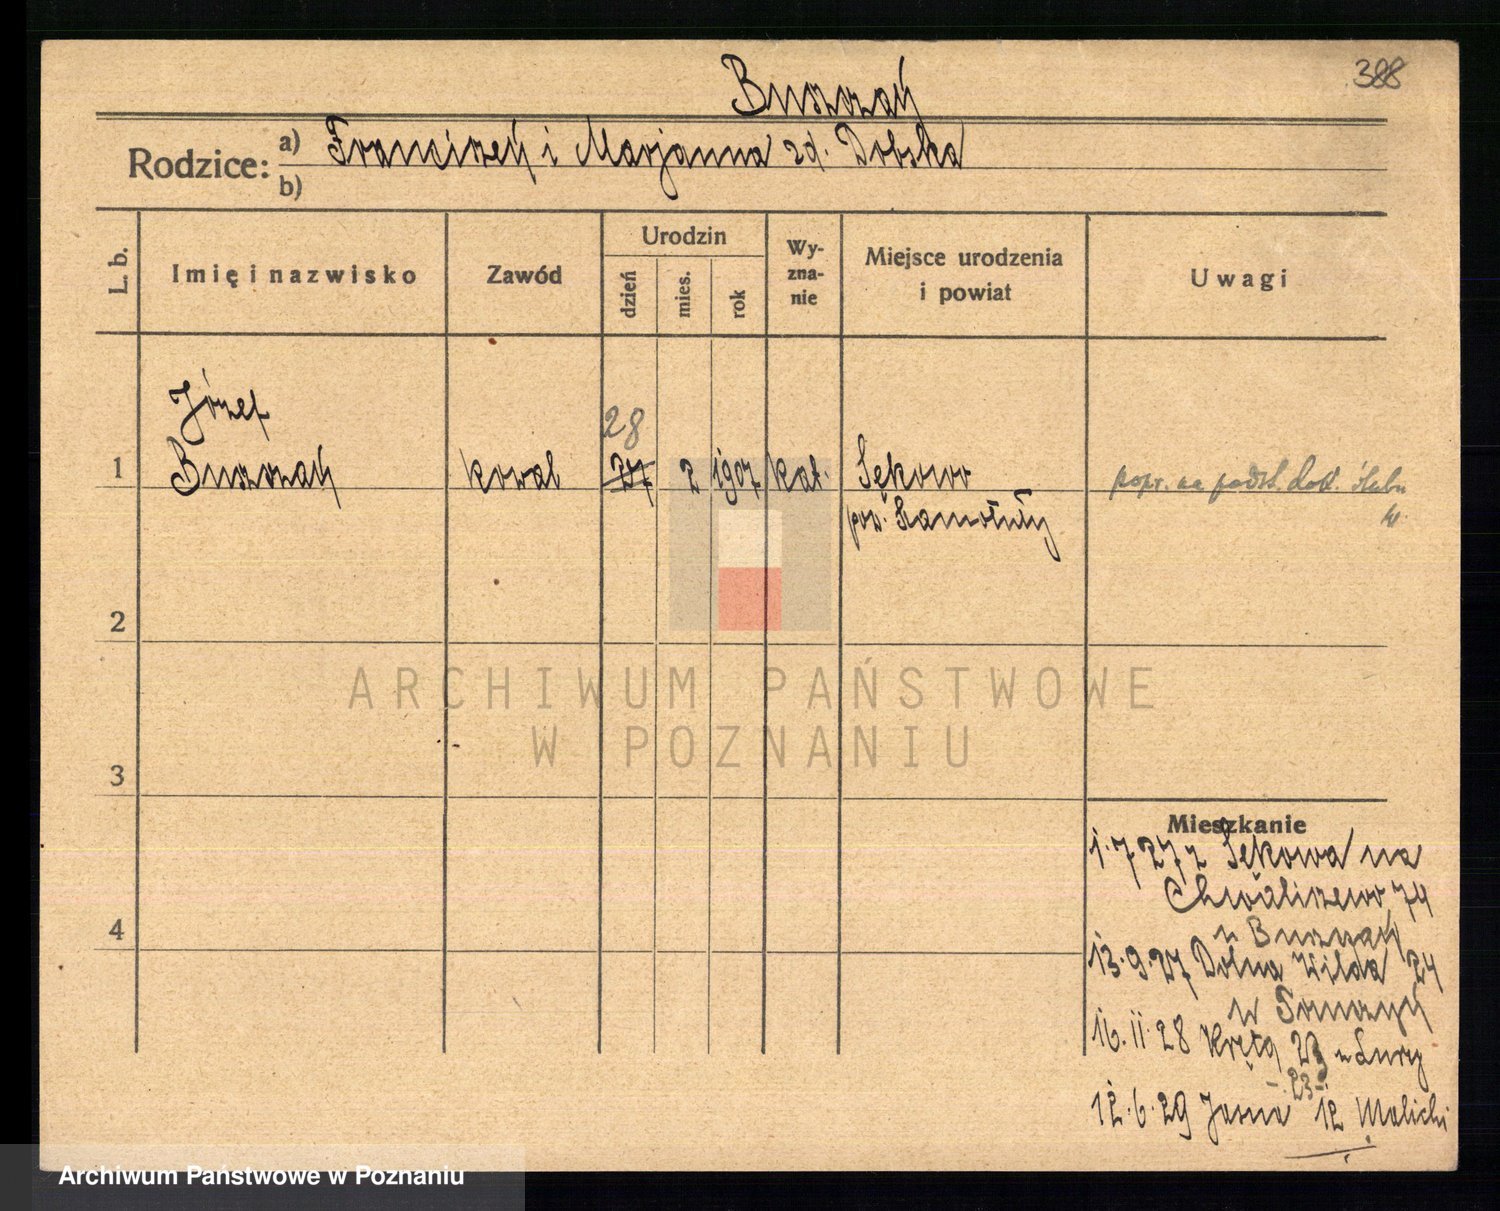 388
Burzzak
Rodzice: a) Franciszek i Marjanna zd. Dobska
b)
L. b.
Imię i nazwisko
Zawód
Urodzin
dzień
mies.
rok
Wy-
zna-
nie
Miejsce urodzenia
i powiat
Uwagi
Józef
28
1 kowal 27 2 1907 kat. Sękowo popr. na podst. dok. ślubu
pow. Szamotuły
2
3
4
ARCHIWUM PAŃSTWOWE
W POZNANIU
Mieszkanie
1.7 27 z Sękowa na
Chwaliszewo 74
u
13.9.27 Dolna Wilda 24
16.11.28 Kręta 23
- 23 -
12.6.29 Jasna 12 Malicki
Archiwum Państwowe w Poznaniu